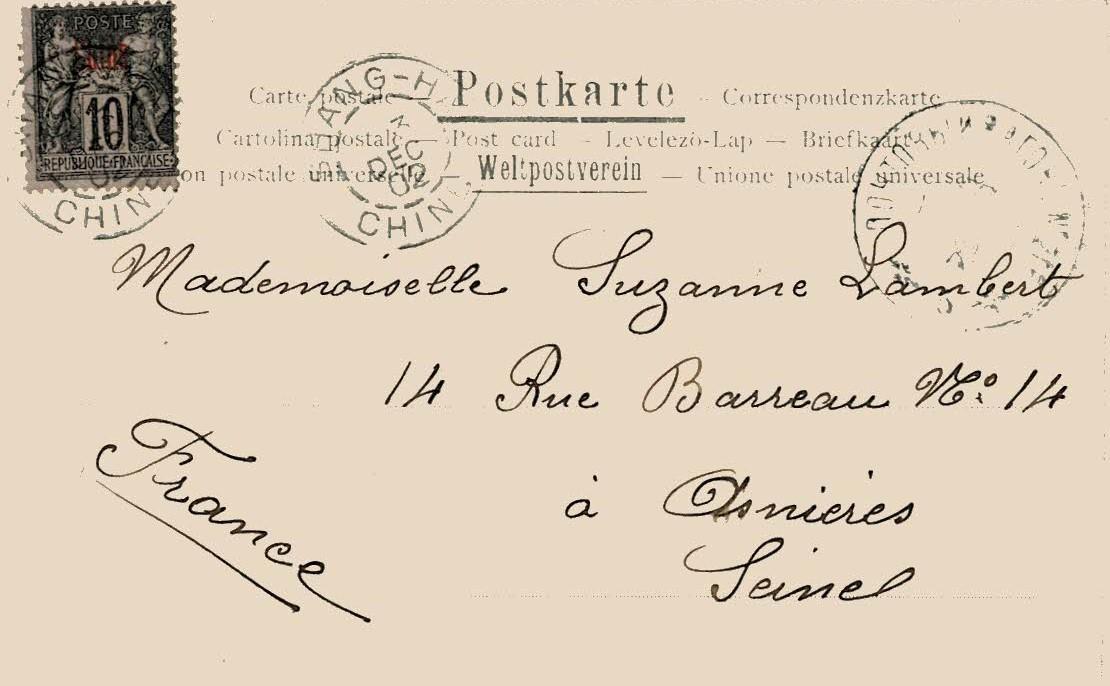 POSTE
10
REPUBLIQUE FRANÇAISE
CHINE
ANG-H
DEC
02
CHINE
Carte postale — Postkarte – Correspondenzkarte
Cartolina postale — Post card – Levelezò-Lap – Briefkaart
on postale universelle — Weltpostverein — Unione postale universale
Mademoiselle Suzanne Lambert
14 Rue Barreau Nº 14
à Asnières
Seine
France